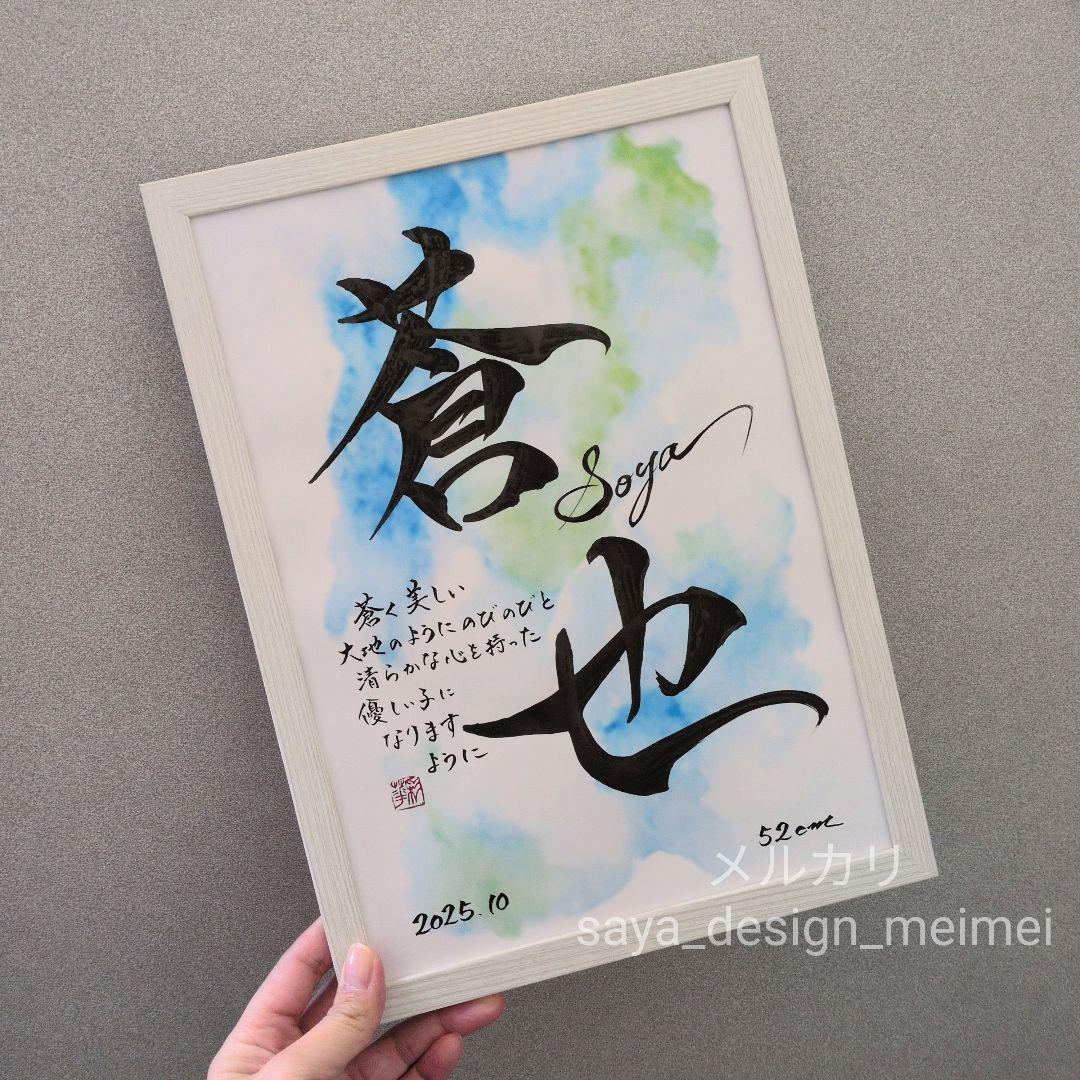 蒼也
Soya
蒼く美しい
大地のようにのびのびと
清らかな心を持った
優しい子に
なります
ように
52cm
2025.10
メルカリ
saya_design_meimei